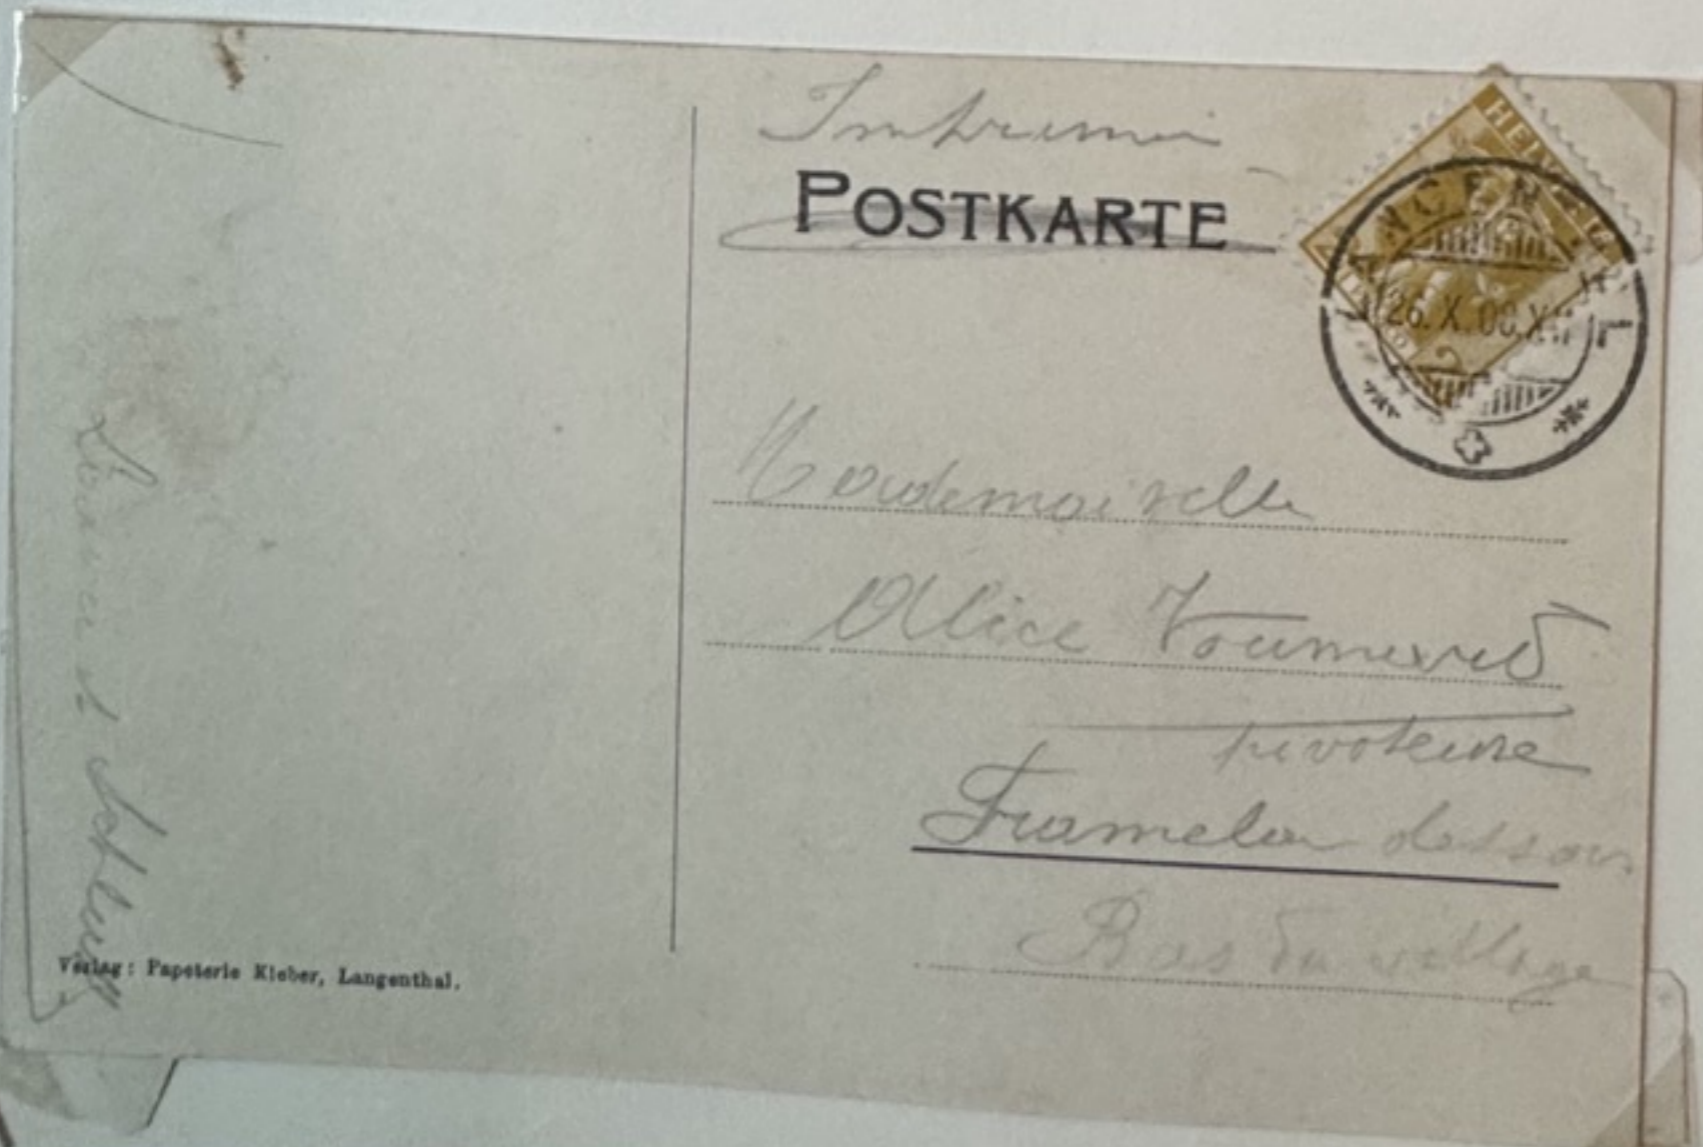 Imprimé
POSTKARTE
HELVETIA
LANGENTHAL
26. X. 09. XII
Mademoiselle
Alice Voumard
pivoteuse
Tramelan dessous
Bas du village
Verlag: Papeterie Kleber, Langenthal.